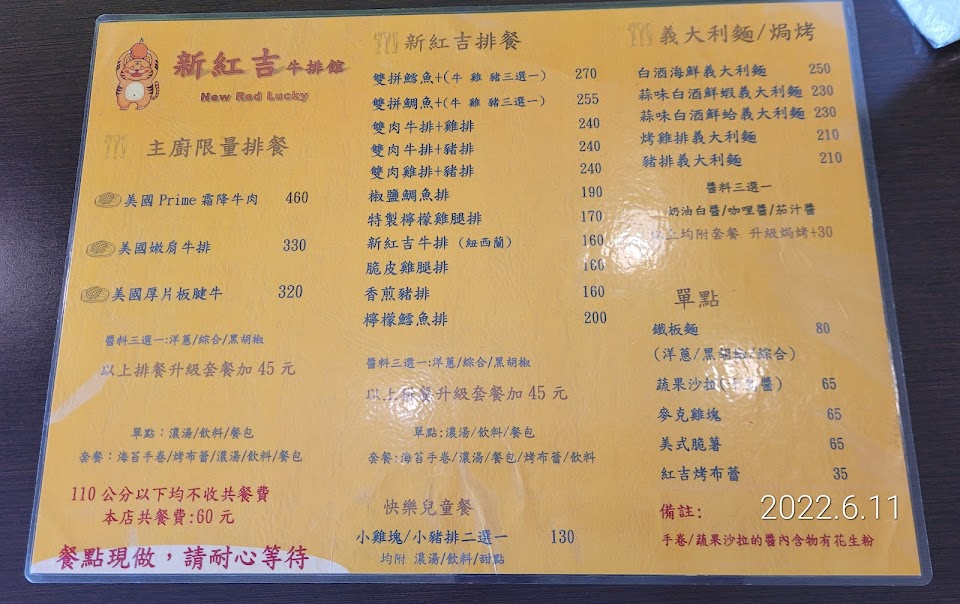 新紅吉 牛排館
New Red Lucky
主廚限量排餐
美國 Prime 霜降牛肉 460
美國嫩肩牛排 330
美國厚片板腱牛 320
醬料三選一:洋蔥/綜合/黑胡椒
以上排餐升級套餐加 45 元
單點：濃湯/飲料/餐包
套餐：海苔手卷/烤布蕾/濃湯/飲料/餐包
110 公分以下均不收共餐費
本店共餐費:60 元
餐點現做，請耐心等待
新紅吉排餐
雙拼鱈魚+(牛 雞 豬三選一) 270
雙拼鯛魚+(牛 雞 豬三選一) 255
雙肉牛排+雞排 240
雙肉牛排+豬排 240
雙肉雞排+豬排 240
椒鹽鯛魚排 190
特製檸檬雞腿排 170
新紅吉牛排 (紐西蘭) 160
脆皮雞腿排 160
香煎豬排 160
檸檬鱈魚排 200
醬料三選一:洋蔥/綜合/黑胡椒
以上排餐升級套餐加 45 元
單點:濃湯/飲料/餐包
套餐:海苔手卷/濃湯/餐包/烤布蕾/飲料
快樂兒童餐
小雞塊/小豬排二選一 130
均附 濃湯/飲料/甜點
義大利麵/焗烤
白酒海鮮義大利麵 250
蒜味白酒鮮蝦義大利麵 230
蒜味白酒鮮蛤義大利麵 230
烤雞排義大利麵 210
豬排義大利麵 210
醬料三選一
奶油白醬/咖哩醬/茄汁醬
以上均附套餐 升級焗烤+30
單點
鐵板麵 80
(洋蔥/黑胡椒/綜合)
蔬果沙拉( 醬) 65
麥克雞塊 65
美式脆薯 65
紅吉烤布蕾 35
備註:
手卷/蔬果沙拉的醬內含物有花生粉
2022.6.11